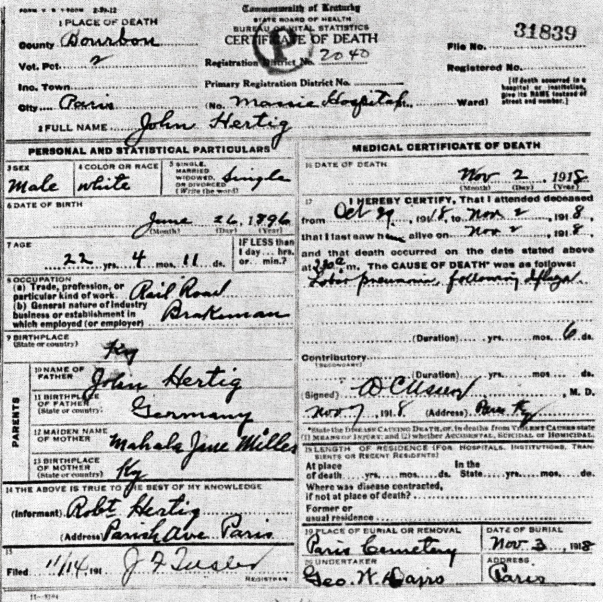 FORM V. S. 1-500M 2-29-12
Commonwealth of Kentucky
STATE BOARD OF HEALTH
BUREAU OF VITAL STATISTICS
CERTIFICATE OF DEATH
1 PLACE OF DEATH
County Bourbon
Vot. Pct. 2
Inc. Town
City Paris
Registration District No. 2040
Primary Registration District No.
(No. Massie Hospital Ward)
File No. 31839
Registered No.
[If death occurred in a hospital or institution, give its NAME instead of street and number.]
2 FULL NAME John Hertig
PERSONAL AND STATISTICAL PARTICULARS
3 SEX
Male
4 COLOR OR RACE
white
5 SINGLE,
MARRIED,
WIDOWED,
OR DIVORCED
(Write the word)
Single
6 DATE OF BIRTH
June 26, 1896
(Month) (Day) (Year)
7 AGE
22 yrs. 4 mos. 11 ds.
IF LESS than
1 day... hrs.
or... min.?
8 OCCUPATION
(a) Trade, profession, or
particular kind of work. Rail Road
(b) General nature of industry
business or establishment in
which employed (or employer) Brakeman
9 BIRTHPLACE
(State or country)
Ky
PARENTS
10 NAME OF
FATHER
John Hertig
11 BIRTHPLACE
OF FATHER
(State or country)
Germany
12 MAIDEN NAME
OF MOTHER
Mahala Jane Miller
13 BIRTHPLACE
OF MOTHER
(State or country)
Ky
14 THE ABOVE IS TRUE TO THE BEST OF MY KNOWLEDGE
(Informant) Robt Hertig
(Address) Parish Ave. Paris
15
Filed 11/14 191
REGISTRAR
MEDICAL CERTIFICATE OF DEATH
16 DATE OF DEATH
Nov 2 1918
(Month) (Day) (Year)
17 I HEREBY CERTIFY, That I attended deceased
from Oct 29, 1918, to Nov 2, 1918,
that I last saw him alive on Nov 2, 1918,
and that death occurred on the date stated above
at m. The CAUSE OF DEATH* was as follows:
Lobar pneumonia, following
(Duration) yrs. mos. 6 ds.
Contributory
(SECONDARY)
(Duration) yrs. mos. ds.
(Signed) M. D.
Nov 7, 1918 (Address) Paris Ky
*State the DISEASE CAUSING DEATH, or, in deaths from VIOLENT CAUSES state
(1) MEANS OF INJURY; and (2) whether ACCIDENTAL, SUICIDAL or HOMICIDAL.
18 LENGTH OF RESIDENCE (FOR HOSPITALS, INSTITUTIONS, TRAN-
SIENTS OR RECENT RESIDENTS)
At place In the
of death yrs. mos. ds. State yrs. mos. ds.
Where was disease contracted,
if not at place of death?
Former or
usual residence
19 PLACE OF BURIAL OR REMOVAL
Paris Cemetery
DATE OF BURIAL
Nov 3, 1918
20 UNDERTAKER
Geo. W. Davis
ADDRESS
Paris